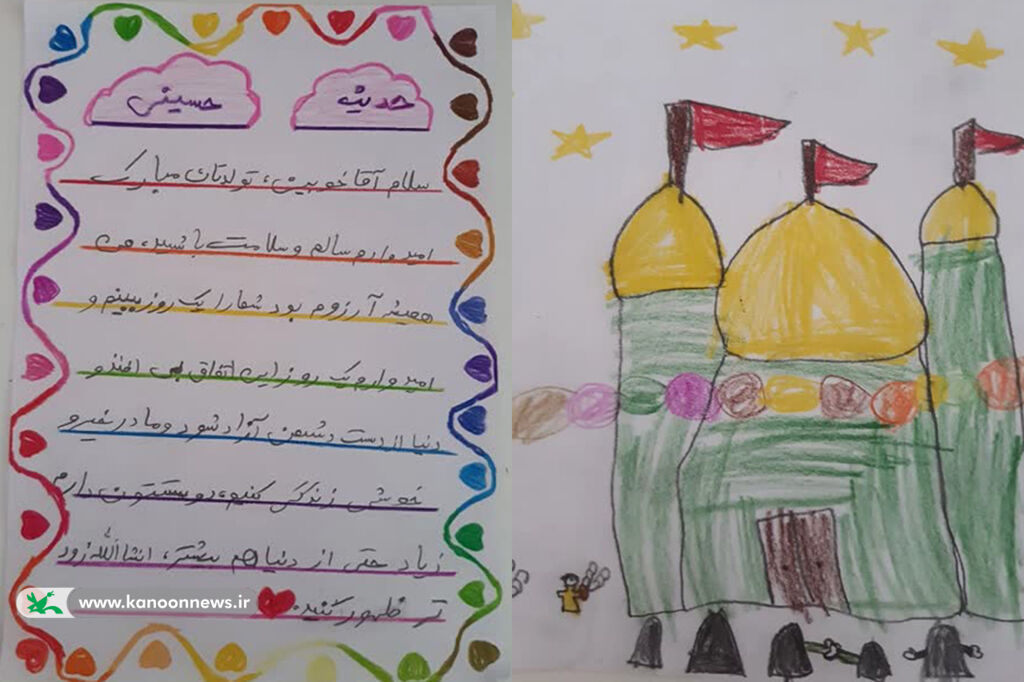 حدیثه حسینی
سلام آقا خوبین، تولدتان مبارک
امیدوارم سالم و سلامت باشید، من
همیشه آرزوم بود شما را یک روز ببینم و
امیدوارم یک روز این اتفاق بی افتد و
دنیا از دست دشمن آزاد شود و ما در خیر و
خوشی زندگی کنیم، دوستتون دارم
زیاد حتی از دنیا هم بیشتر، انشاالله زود
تر ظهور کنید.
www.kanoonnews.ir